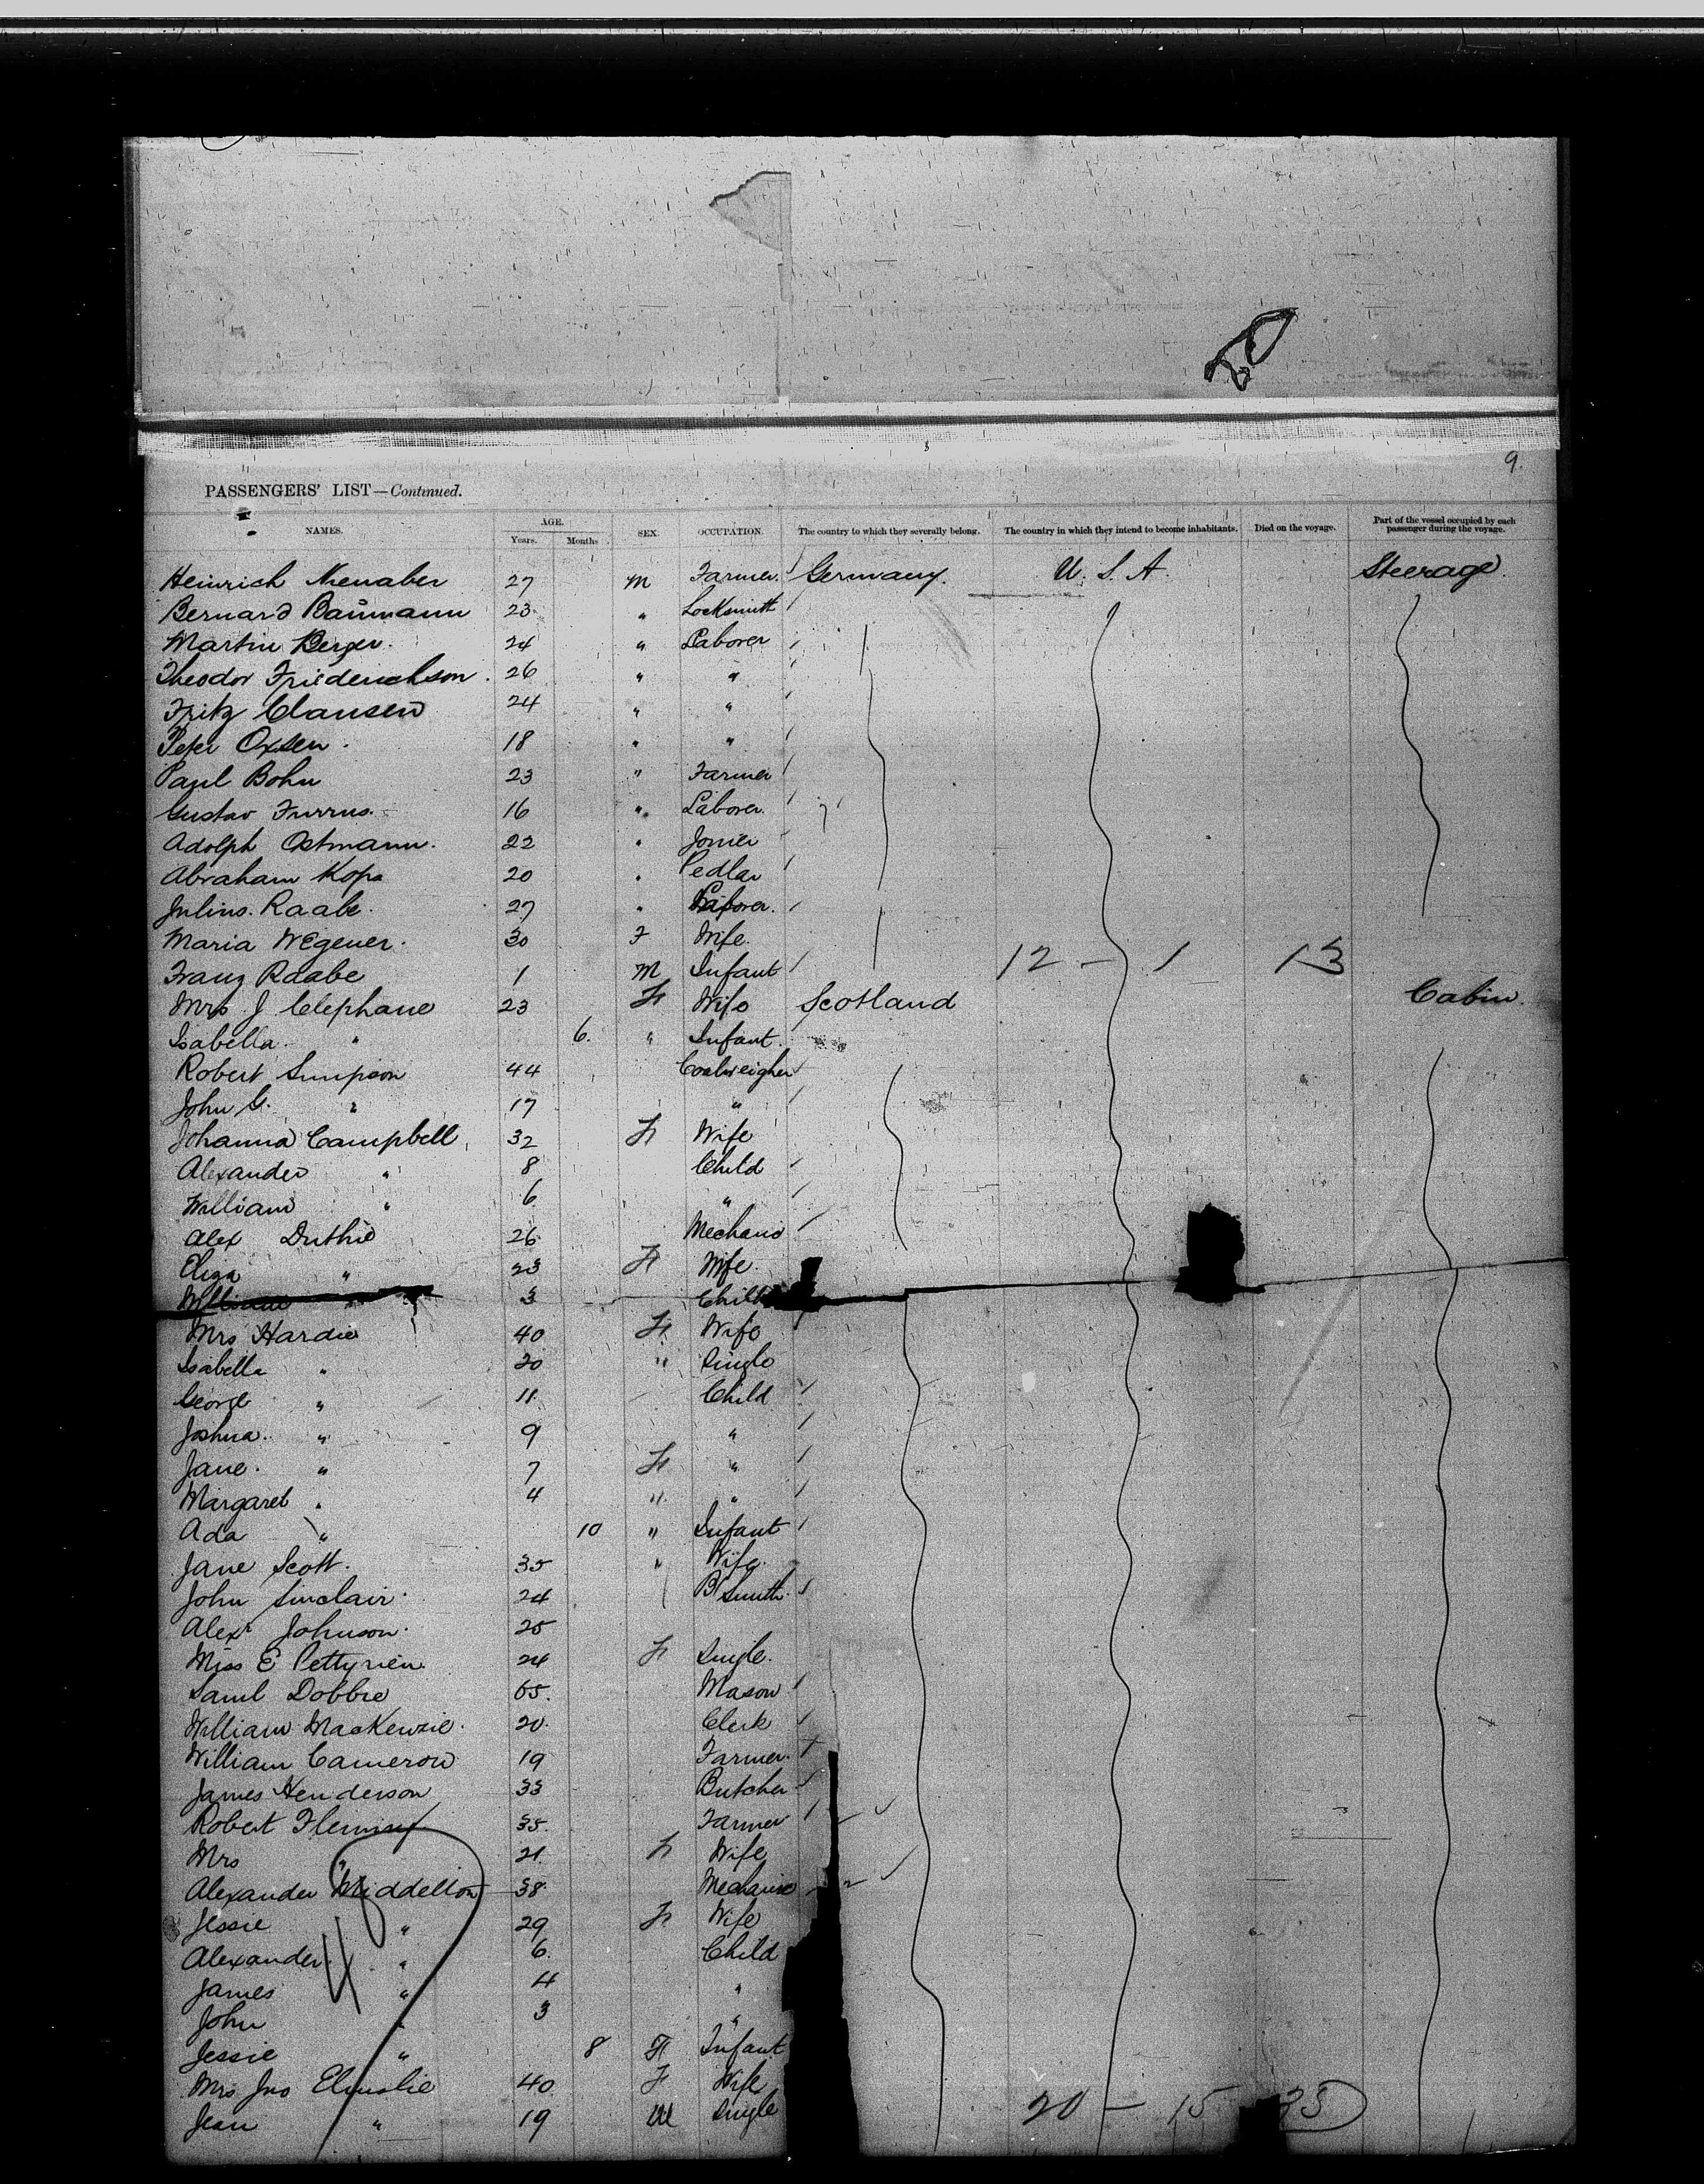 9.
PASSENGERS' LIST—Continued.
NAMES. AGE. Years. Months. SEX. OCCUPATION. The country to which they severally belong. The country in which they intend to become inhabitants. Died on the voyage. Part of the vessel occupied by each passenger during the voyage.
Heinrich Nienaber 27 M Farmer Germany. U. S. A. Steerage.
Bernard Baumann 23 " Locksmith
Martin Berger. 24 " Laborer
Theodor Friederichson. 26 " "
Fritz Clausen 24 " "
Peter Oxsen. 18 " "
Paul Bohn 23 " Farmer
Gustav 16 " Laborer.
Adolph Ostmann. 22 " Joiner
Abraham Kops 20 " Pedlar
Julius Raabe. 27 " Laborer.
Maria Wegener. 30 F Wife.
Franz Raabe 1 M Infant 12 — 1 13
Mrs J Clephane 23 F Wife Scotland Cabin.
Isabella " 6. " Infant.
Robert Simpson 44 Coalweigher
John G. " 17 "
Johanna Campbell, 32 F Wife
Alexander " 8 Child
William " 6 "
Alex Duthie 26 Mechanic
Eliza " 23 F Wife.
William " 3 Child
Mrs Hardie 40 F. Wife
Isabella " 20 " Single
George " 11. Child
Joshua. " 9 "
Jane. " 7 F "
Margaret " 4 " "
Ada " 10 " Infant
Jane Scott. 35 " Wife.
John Sinclair. 24 Bl Smith.
Alexr Johnson. 25
Miss E 24 F Single.
Saml Dobbie 65. Mason
William MacKenzie. 20. Clerk
William Cameron 19 Farmer.
James Henderson 33 Butcher
Robert Fleming 35. Farmer
Mrs " 21. F Wife
Alexander Middelton 38. Mechanic
Jessie " 29 F Wife
Alexander " 6. Child
James " 4 "
John " 3 "
Jessie " 8 F Infant
Mrs Jno Elmslie 40 F Wife
Jean " 19 Single 20 — 15 35